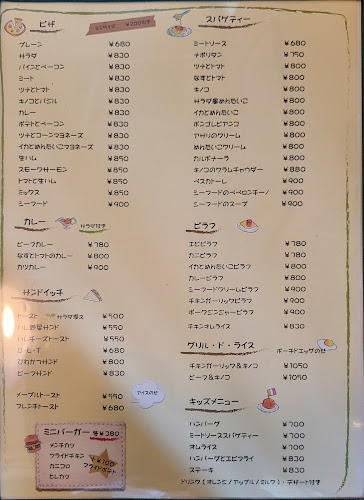 ピザ
プレーン ¥680
サラダ ¥830
パインとベーコン ¥830
ミート ¥830
ツナとトマト ¥830
キノコとバジル ¥830
カレー ¥830
ポテトとベーコン ¥830
ツナとコーンマヨネーズ ¥830
イカとめんたいこマヨネーズ ¥830
生ハム ¥850
スモークサーモン ¥850
トマトと生ハム ¥850
ミックス ¥850
シーフード ¥900
カレー サラダ付き
ビーフカレー ¥780
なすとトマトのカレー ¥800
カツカレー ¥900
サンドイッチ
トースト サラダ添え ¥500
ハム野菜サンド ¥550
ハムチーズトースト ¥550
B・L・T ¥680
ひれかつサンド ¥800
ビーフサンド ¥830
アイスのせ
メープルトースト ¥550
フレンチトースト ¥680
ミニバーガー 各¥380
メンチカツ
フライドチキン
カニコロ
ヒレカツ
¥100
フライドポテト
スパゲティー
ミートソース ¥680
ナポリタン ¥750
ツナとトマト ¥800
なすとトマト ¥800
キノコ ¥800
サラダ風めんたいこ ¥800
イカとめんたいこ ¥800
ボンゴレビアンコ ¥800
アサリのクリーム ¥800
めんたいクリーム ¥800
カルボナーラ ¥800
キノコのクラムチャウダー ¥880
ペスカトーレ ¥900
シーフードのペペロンチーノ ¥900
シーフードのスープ ¥900
ピラフ
エビピラフ ¥780
カニピラフ ¥780
イカとめんたいこピラフ ¥780
カレーピラフ ¥780
シーフードクリームピラフ ¥900
チキンガーリックピラフ ¥900
ポークジンジャーピラフ ¥900
チキンオムライス ¥830
グリル・ド・ライス ポーチドエッグのせ
チキンガーリック&キノコ ¥1050
ビーフ&キノコ ¥1050
キッズメニュー
ハンバーグ ¥700
ミートソーススパゲティー ¥700
オムライス ¥700
ハンバーグとエビフライ ¥830
ステーキ ¥830
ドリンク(オレンジ/アップル/ミルク)・デザート付き